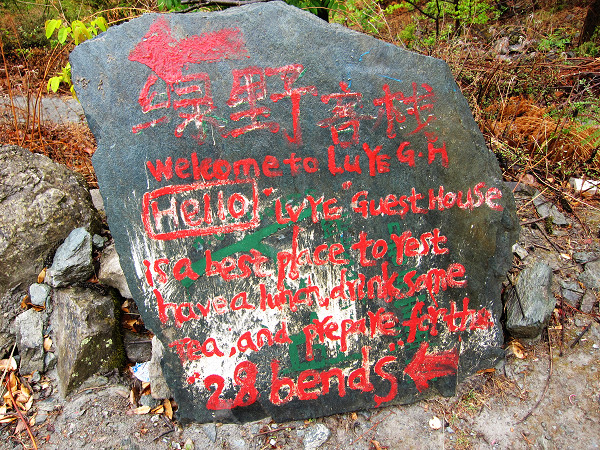 绿野客栈
Welcome to LuYE G.H
Hello "LuYE" Guest House
is a best place to rest
have a lunch, drink some
Tea, and prepare for the
"28 bends"